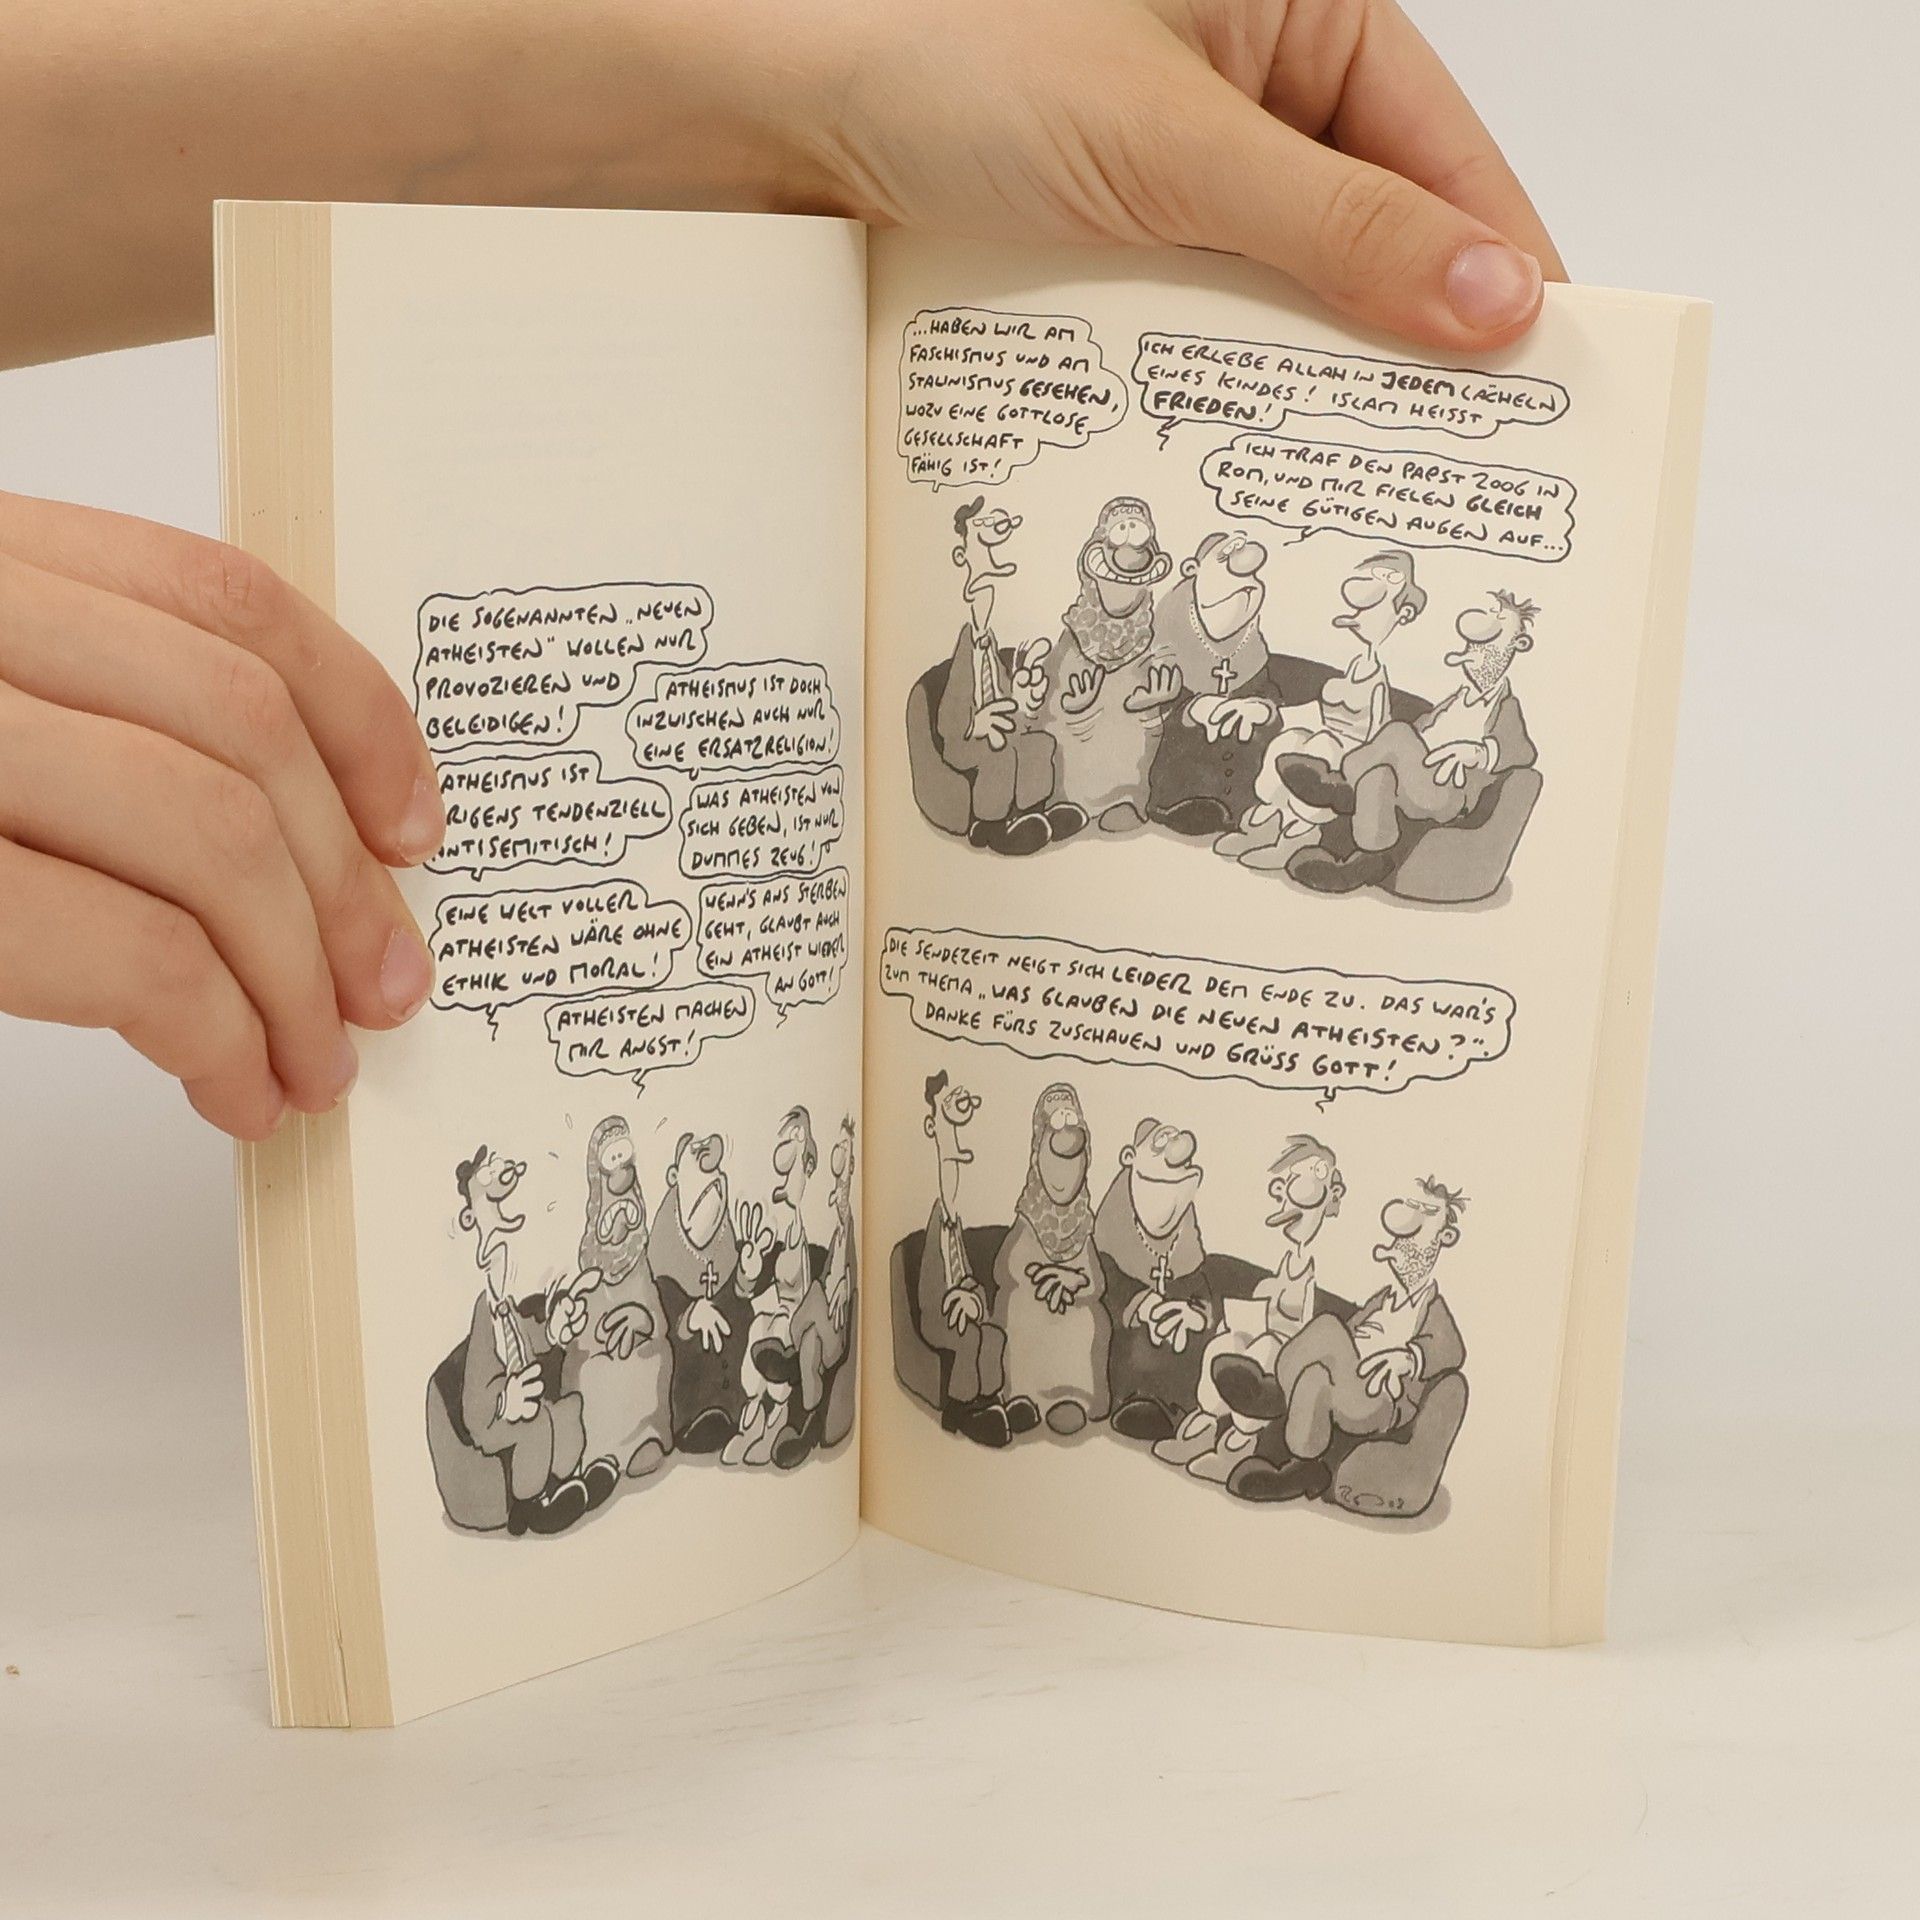 DIE SOGENANNTEN „NEUEN
ATHEISTEN" WOLLEN NUR
PROVOZIEREN UND
BELEIDIGEN!
ATHEISMUS IST DOCH
INZWISCHEN AUCH NUR
EINE ERSATZRELIGION!
ATHEISMUS IST
RIGENS TENDENZIELL
ANTISEMITISCH!
WAS ATHEISTEN VON
SICH GEBEN, IST NUR
DUMMES ZEUG!
EINE WELT VOLLER
ATHEISTEN WÄRE OHNE
ETHIK UND MORAL!
WENN'S ANS STERBEN
GEHT, GLAUBT AUCH
EIN ATHEIST WIEDER
AN GOTT!
ATHEISTEN MACHEN
MIR ANGST!
...HABEN WIR AM
FASCHISMUS UND AM
STALINISMUS GESEHEN,
WOZU EINE GOTTLOSE
GESELLSCHAFT
FÄHIG IST!
ICH ERLEBE ALLAH IN JEDEM LÄCHELN
EINES KINDES! ISLAM HEISST
FRIEDEN!
ICH TRAF DEN PAPST 2006 IN
ROM, UND MIR FIELEN GLEICH
SEINE GÜTIGEN AUGEN AUF...
DIE SENDEZEIT NEIGT SICH LEIDER DEM ENDE ZU. DAS WAR'S
ZUM THEMA „WAS GLAUBEN DIE NEUEN ATHEISTEN?".
DANKE FÜRS ZUSCHAUEN UND GRÜSS GOTT!